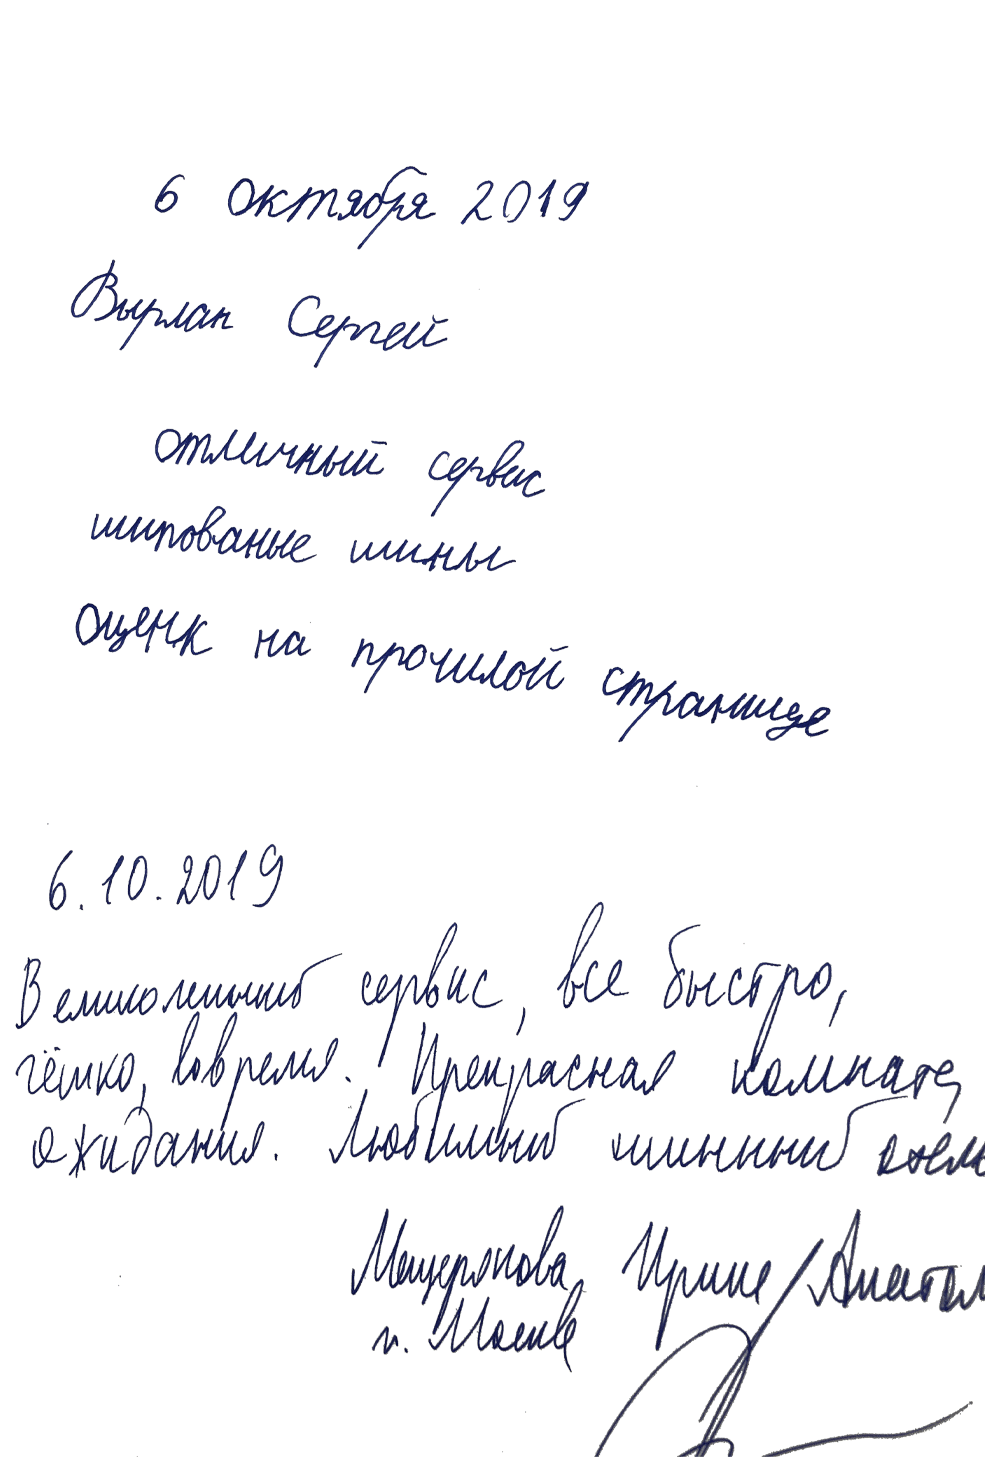 6 октября 2019
Вырлан Сергей
отличный сервис
шипованые шины
оценк на прочилой странице
6.10.2019
Великолепный сервис, все быстро,
чётко, вовремя. Прекрасная комната
ожидания. Любимый шинный отель
Мещерякова Ирина Анатол
г. Москва